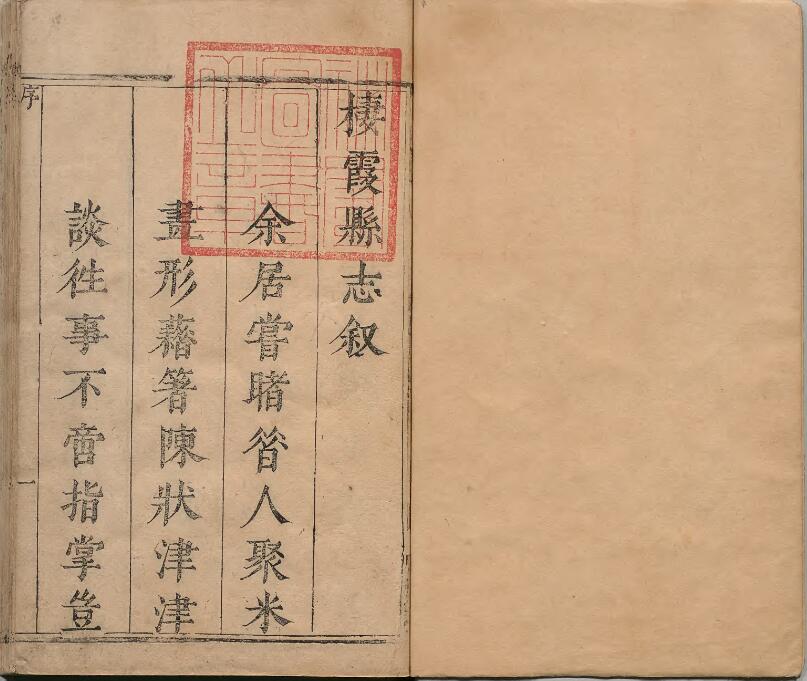 棲霞縣志叙
余居嘗睹昝人聚米
畫形藉箸陳狀津津
談徃事不啻指掌豈
序
一